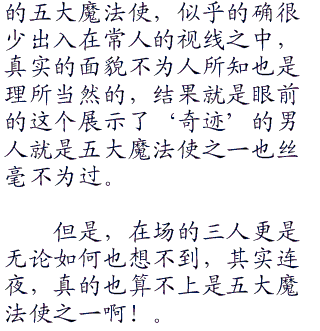 的五大魔法使，似乎的确很
少出入在常人的视线之中，
真实的面貌不为人所知也是
理所当然的，结果就是眼前
的这个展示了‘奇迹’的男
人就是五大魔法使之一也丝
毫不为过。
但是，在场的三人更是
无论如何也想不到，其实连
夜，真的也算不上是五大魔
法使之一啊！。